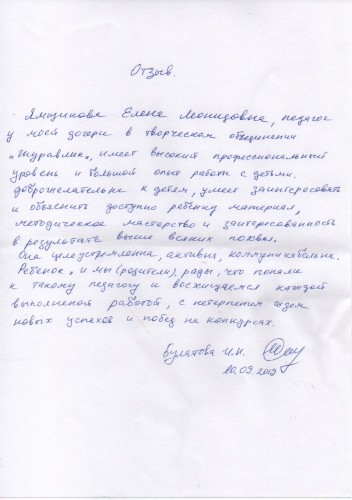 Отзыв.
Ямщикова Елена Леонидовна, педагог
у моей дочери в творческом объединении
"Журавлик", имеет высокий профессиональный
уровень и большой опыт работы с детьми.
Доброжелательна к детям, умеет заинтересовать
и объяснить доступно ребенку материал,
методическое мастерство и заитересованность
в результате выше всяких похвал.
Она целеустремленна, активна, коммуникабельна.
Ребенок, и мы (родители), рады, что попали
к такому педагогу и восхищаемся каждой
выполненой работой, с нетерпением ждем
новых успехов и побед на конкурсах.
Булатова И.И.
10.09.2019